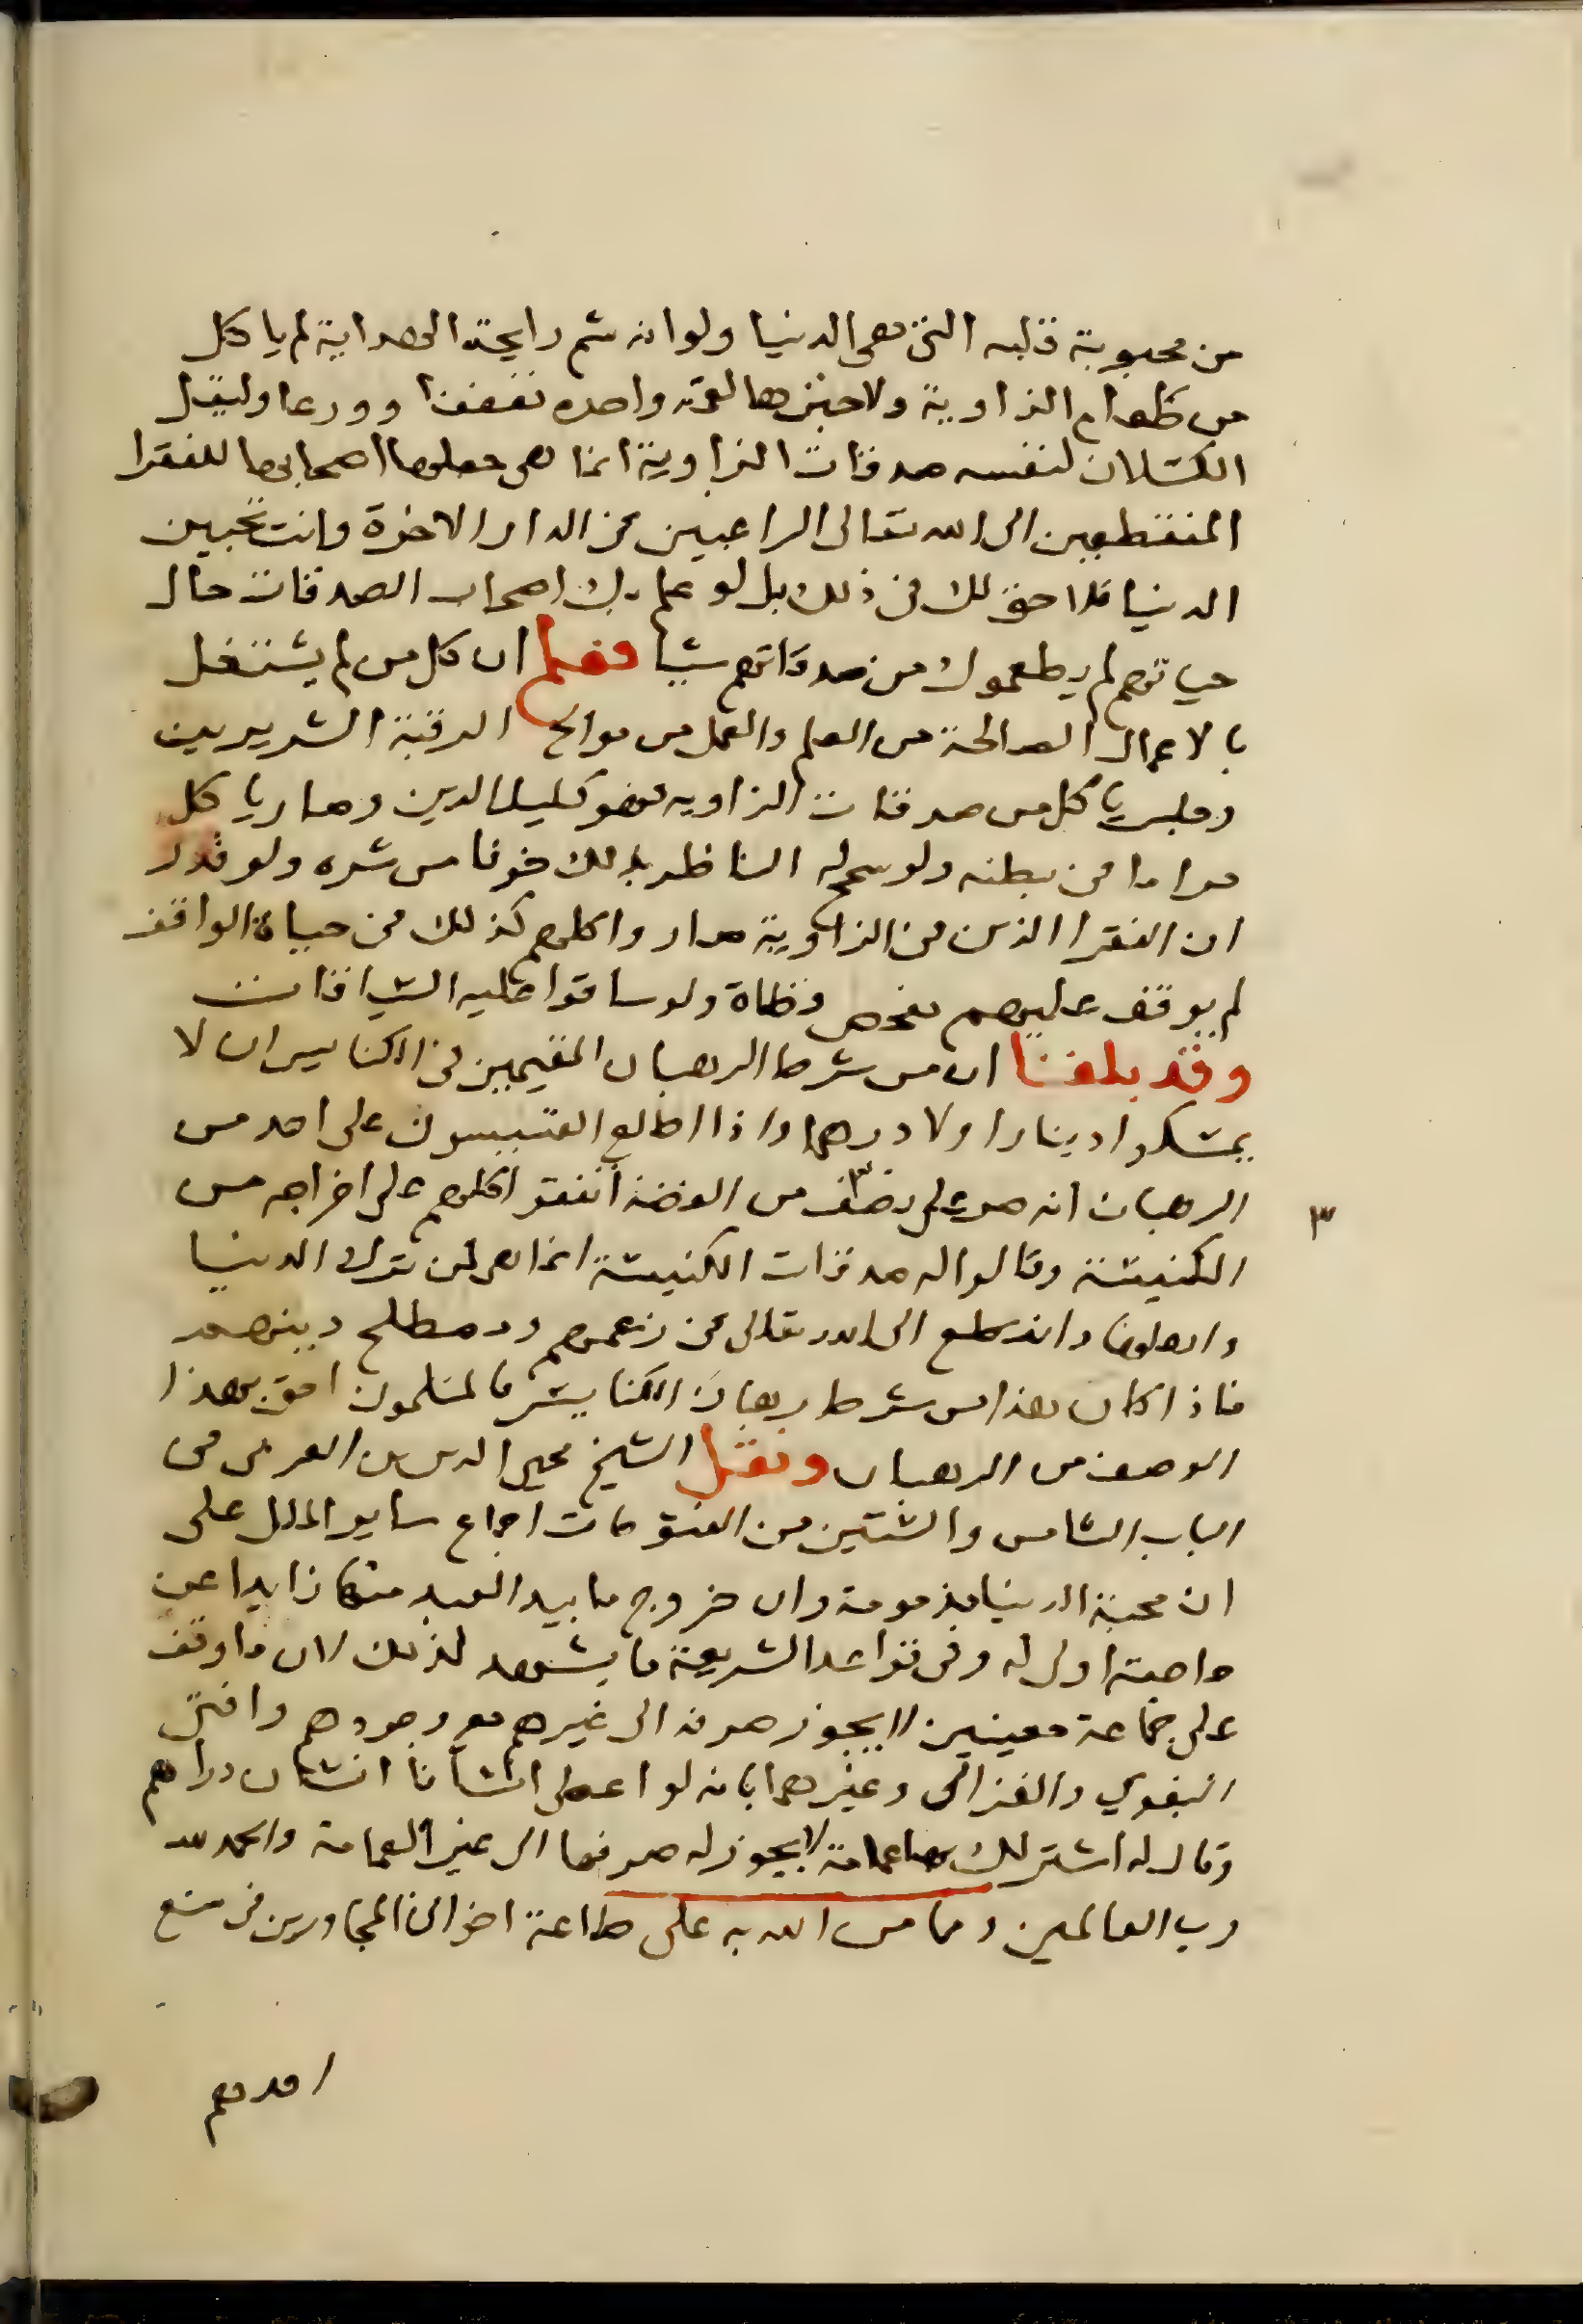 من محبوبة قلبه التى هى الدنيا ولوانه شم رايحة الهداية لم ياكل
من طعام الزاوية ولاخبزها لقمة واحده تعففا وورعا وليقل
الكسلان لنفسه صدقات الزاوية انما هى جعلها اصحابها للفقرا
المنقطعين الى الله تعالى الراغبين فى الدار الاخرة وانت تحبين
الدنيا فلا حق لك فى ذلك بل لو علم بك اصحاب الصدقات حال
حياتهم لم يطعموك من صدقاتهم شيا فعلم ان كل من لم يشتغل
بالاعمال الصالحة من العلم والعمل من الشريرين
وجلس ياكل من صدقات الزاويه فهو قليل الدين وصار ياكل
حراما فى بطنه ولو سمح له الناظر بذلك خوفا من شره ولو قدر
ان الفقرا الذين فى الزاوية صاروا كلهم كذلك فى حياة الواقف
لم يوقف عليهم قطاة ولو ساقوا عليه السياقات
وقد بلغنا ان من شرط الرهبان المقيمين فى الكنايس ان لا
يمسكوا دينارا ولا درهما واذا اطلع القسيسون على احد من
الرهبان انه صر على نصف من الفضة اتفقوا كلهم على اخراجه من
الكنيسة وقالوا له صدقات الكنيسة انما هى لمن ترك الدنيا
واهلها وانقطع الى الله تعالى فى زعمهم ومصطلح دينهم
فاذا كان هذا من شرط رهبان الكنايس فالمسلمون احق بهذا
الوصف من الرهبان ونقل الشيخ محيى الدين بن العربى فى
الباب الثامن والستين من الفتوحات اجماع ساير الملل على
ان محبة الدنيا مذمومة وان خروج ما بيد العبد منها زايدا عن
حاجته اولى له وفى قواعد الشريعة ما يشهد لذلك لان ما وقف
على جماعة معينين لا يجوز صرفه الى غيرهم مع وجودهم وافتى
البغوي والغزالى وغيرهما بانه لو اعطى انسانا انسان دراهم
وقال له اشتر لك بها عمامة لا يجوز له صرفها الى غير العمامة والحمد لله
رب العالمين ومما من الله به على طاعة اخوانى المجاورين فى منع
٣
احدهم